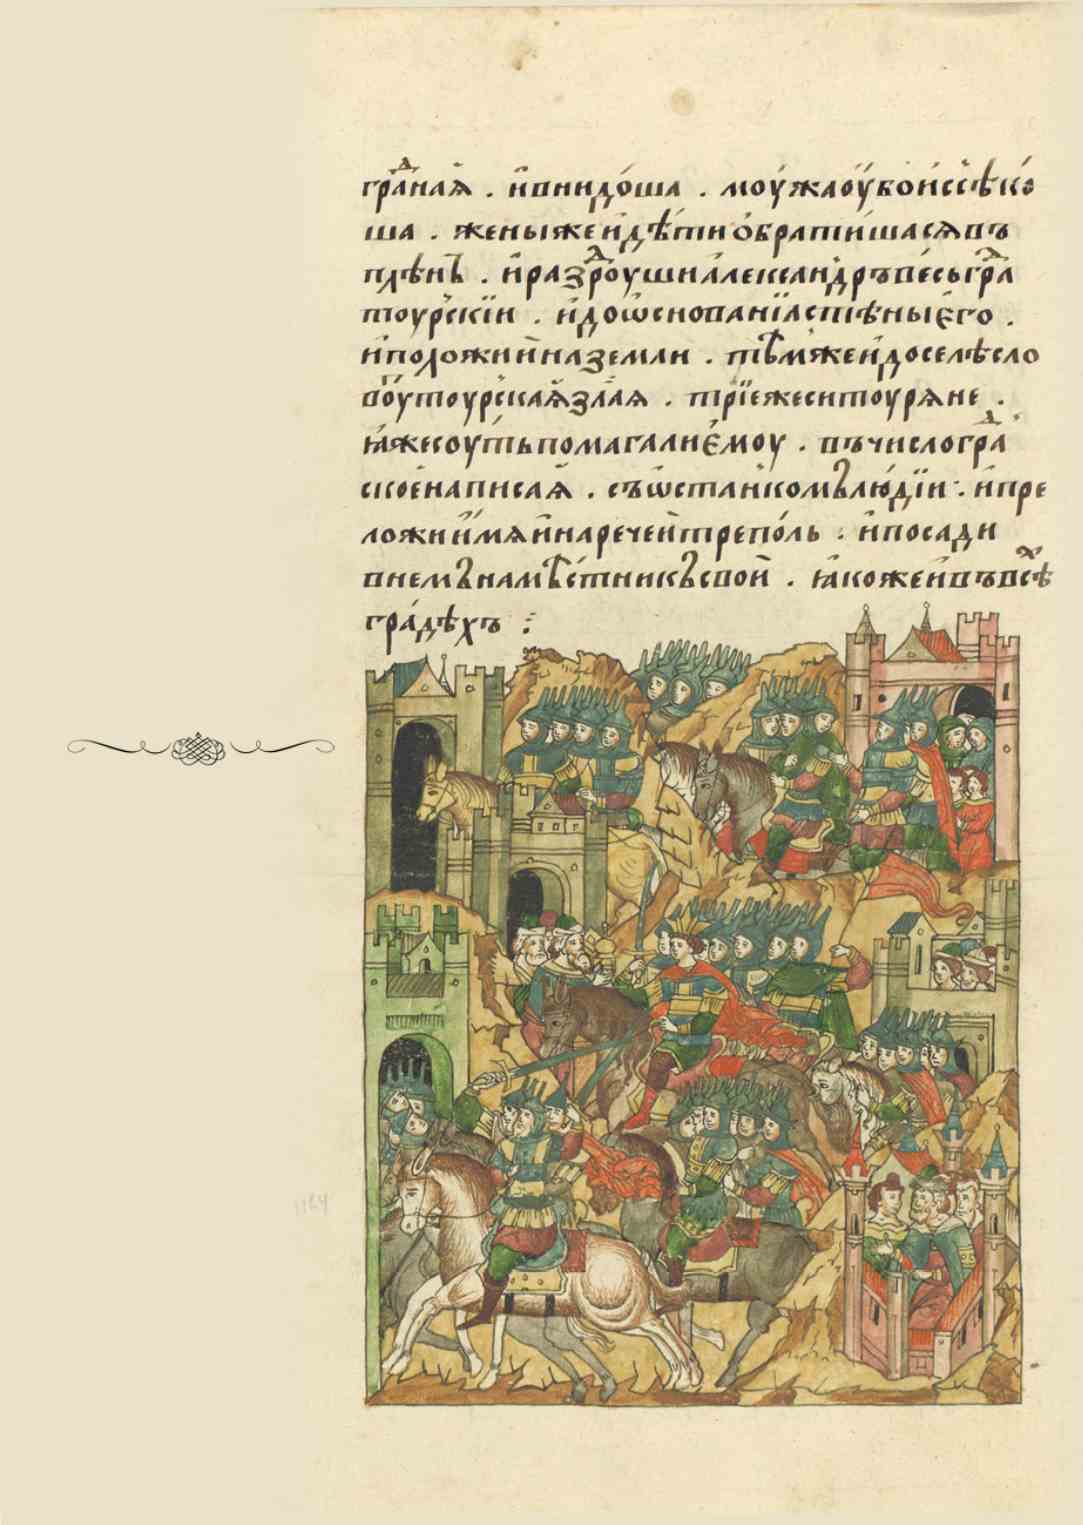 граⷣнаѧ . и внидоша . моужа оубо иссѣко
ша . жены же и дѣти ѡбратишасѧ въ
плѣнъ . и раздроуши александръ весь граⷣ
тоурскїи . и до ѡснованїа стѣны его .
и положи й на земли . тѣмже и доселѣ сло
воу тоурскаѧ злаѧ . трїе же сии тоурѧне .
ꙗже соуть помагали емоу . въ число граⷣ
ское написаѧ . съ ѡстанкомъ людїи . и пре
ложи имѧ и нарече й треполь . и посади
в немъ намѣстникъ свой . ꙗкоже и въ всѣⷯ
градѣхъ :
1164